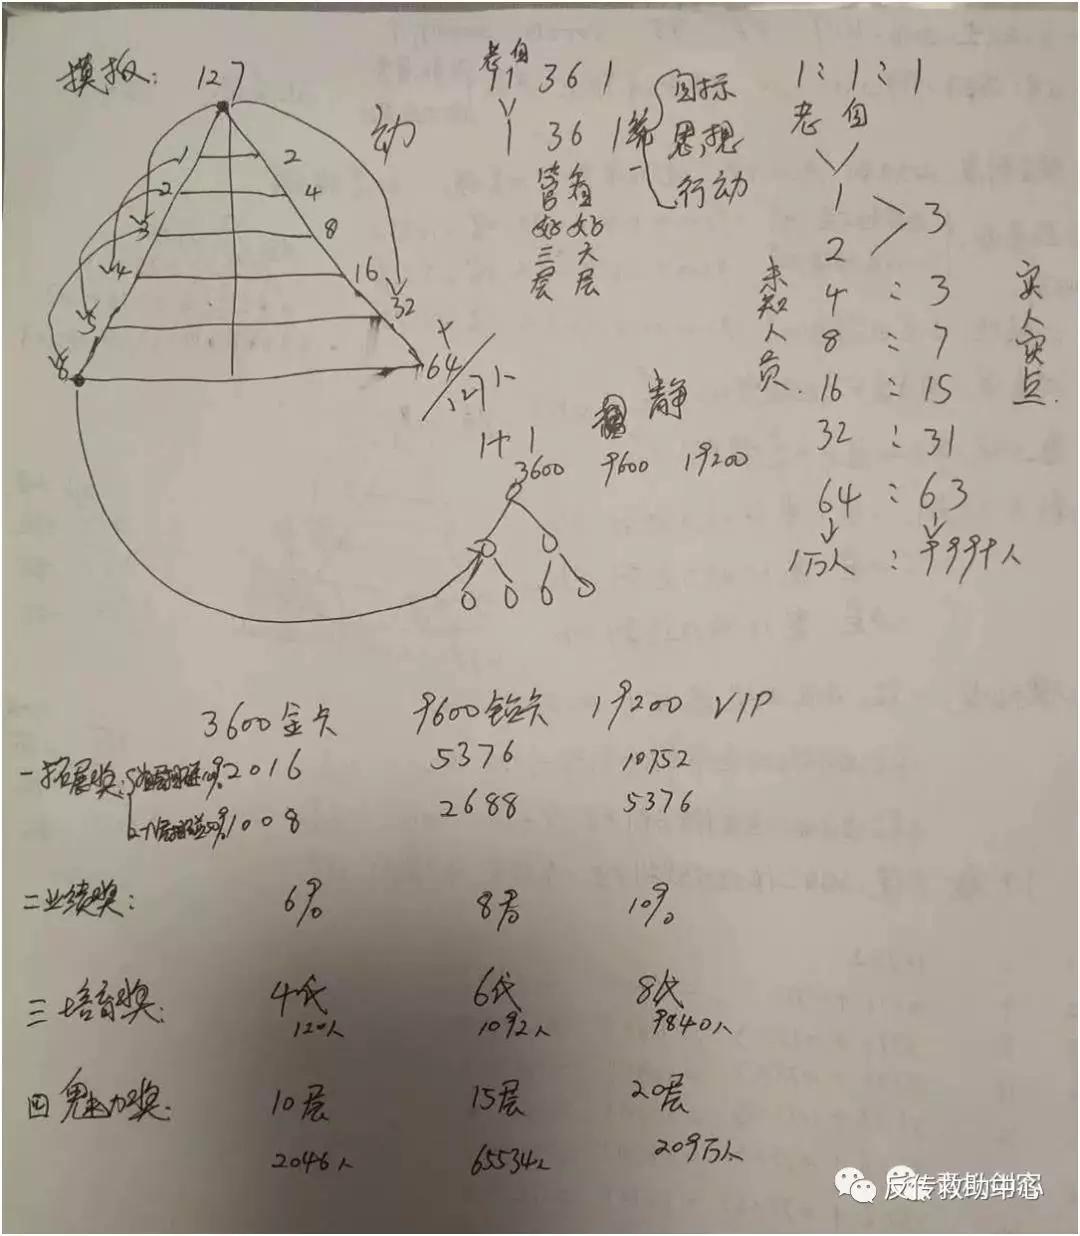 模板: 127
老自
11 3 6 1
1:1:1
老 自
动
1 3 6 1 统一
目标
思想
行动
管好三层
看好六层
1 2
2 4
3 8
4 16
5 32
6 64
127个
1
2
3
4 : 3
8 : 7
16 : 15
32 : 31
64 : 63
1万人 : 9999人
未知人员
实人实点.
静
1+1
3600 9600 19200
3600金卡 9600钻卡 19200 VIP
一拓展奖: 2016 5376 10752
1008 2688 5376
二业绩奖: 6% 8% 10%
三 培育奖: 4代 6代 8代
120人 1092人 9840人
四 魅力奖: 10层 15层 20层
2046人 65534人 209万人
反传救助中心